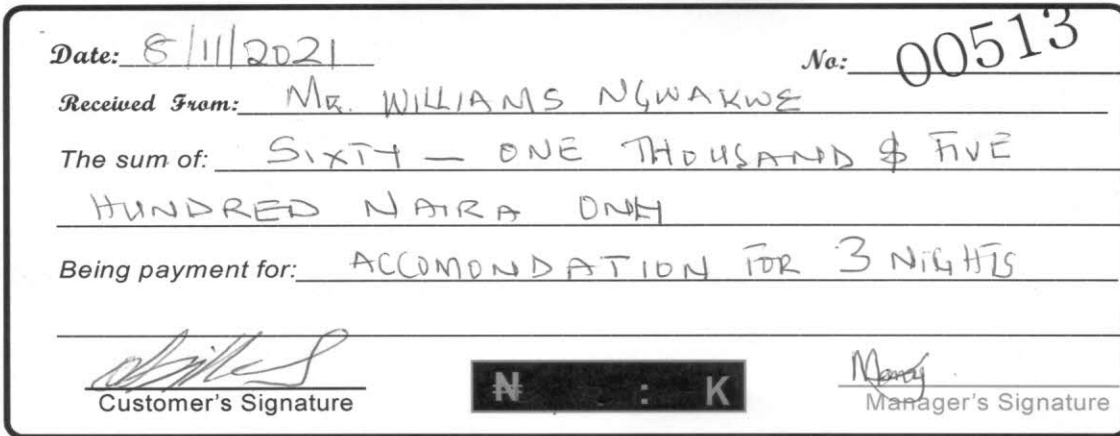 Date: 8/11/2021 No: 00513
Received From: MR. WILLIAMS NGWAKWE
The sum of: SIXTY - ONE THOUSAND $ FIVE
HUNDRED NAIRA ONLY
Being payment for: ACCOMONDATION FOR 3 NIGHTS
₦ : K
Customer's Signature Manager's Signature